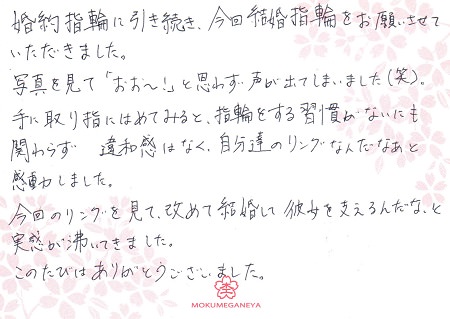 婚約指輪に引き続き、今回結婚指輪をお願いさせて
いただきました。
写真を見て「おお〜！」と思わず声が出てしまいました(笑)。
手に取り指にはめてみると、指輪をする習慣がないにも
関わらず 違和感はなく、自分達のリングなんだなあと
感動しました。
今回のリングを見て、改めて結婚して彼女を支えるんだな、と
実感が沸いてきました。
このたびはありがとうございました。
MOKUMEGANEYA